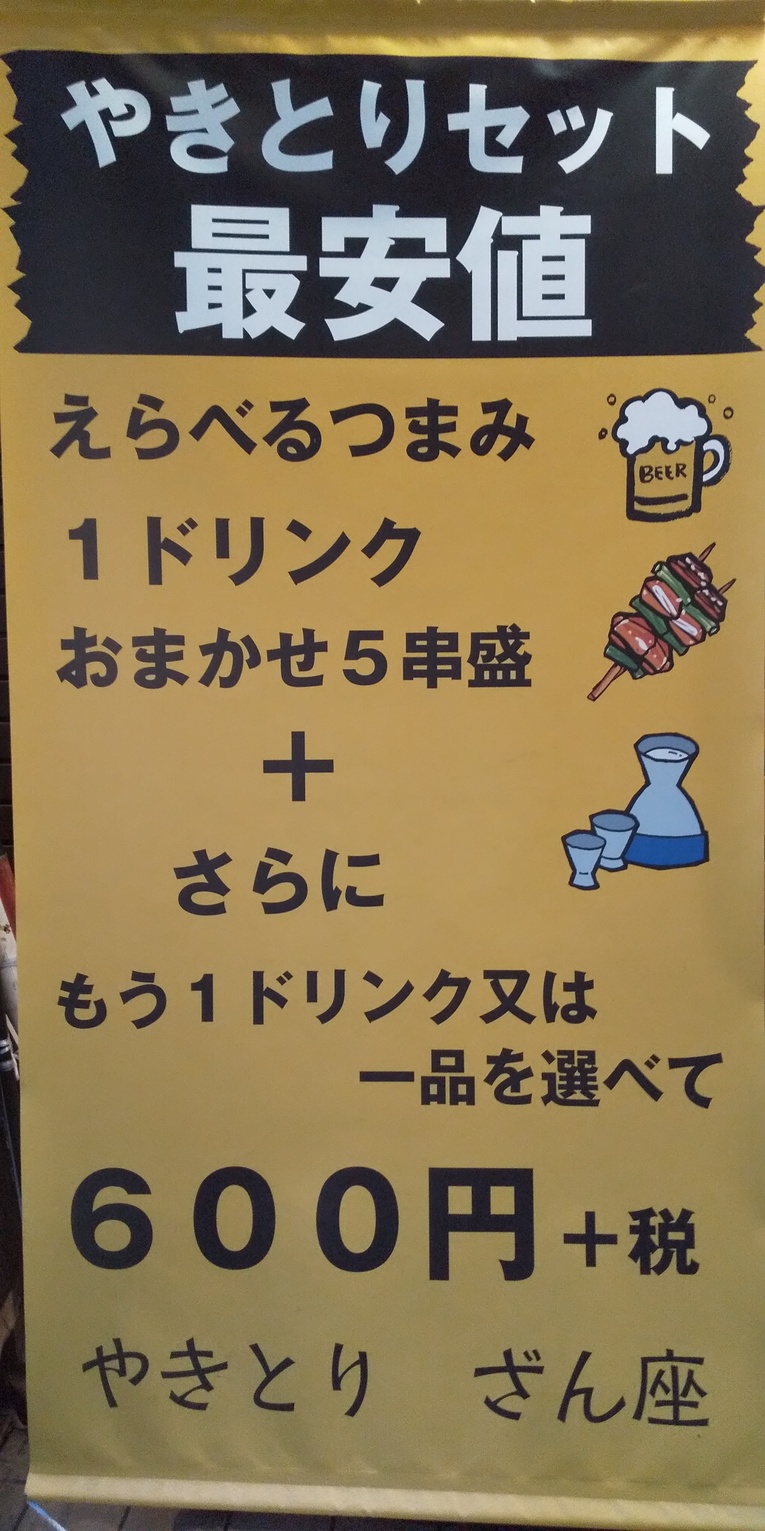 やきとりセット
最安値
えらべるつまみ
BEER
1ドリンク
おまかせ5串盛
+
さらに
もう1ドリンク又は
一品を選べて
600円+税
やきとり ざん座